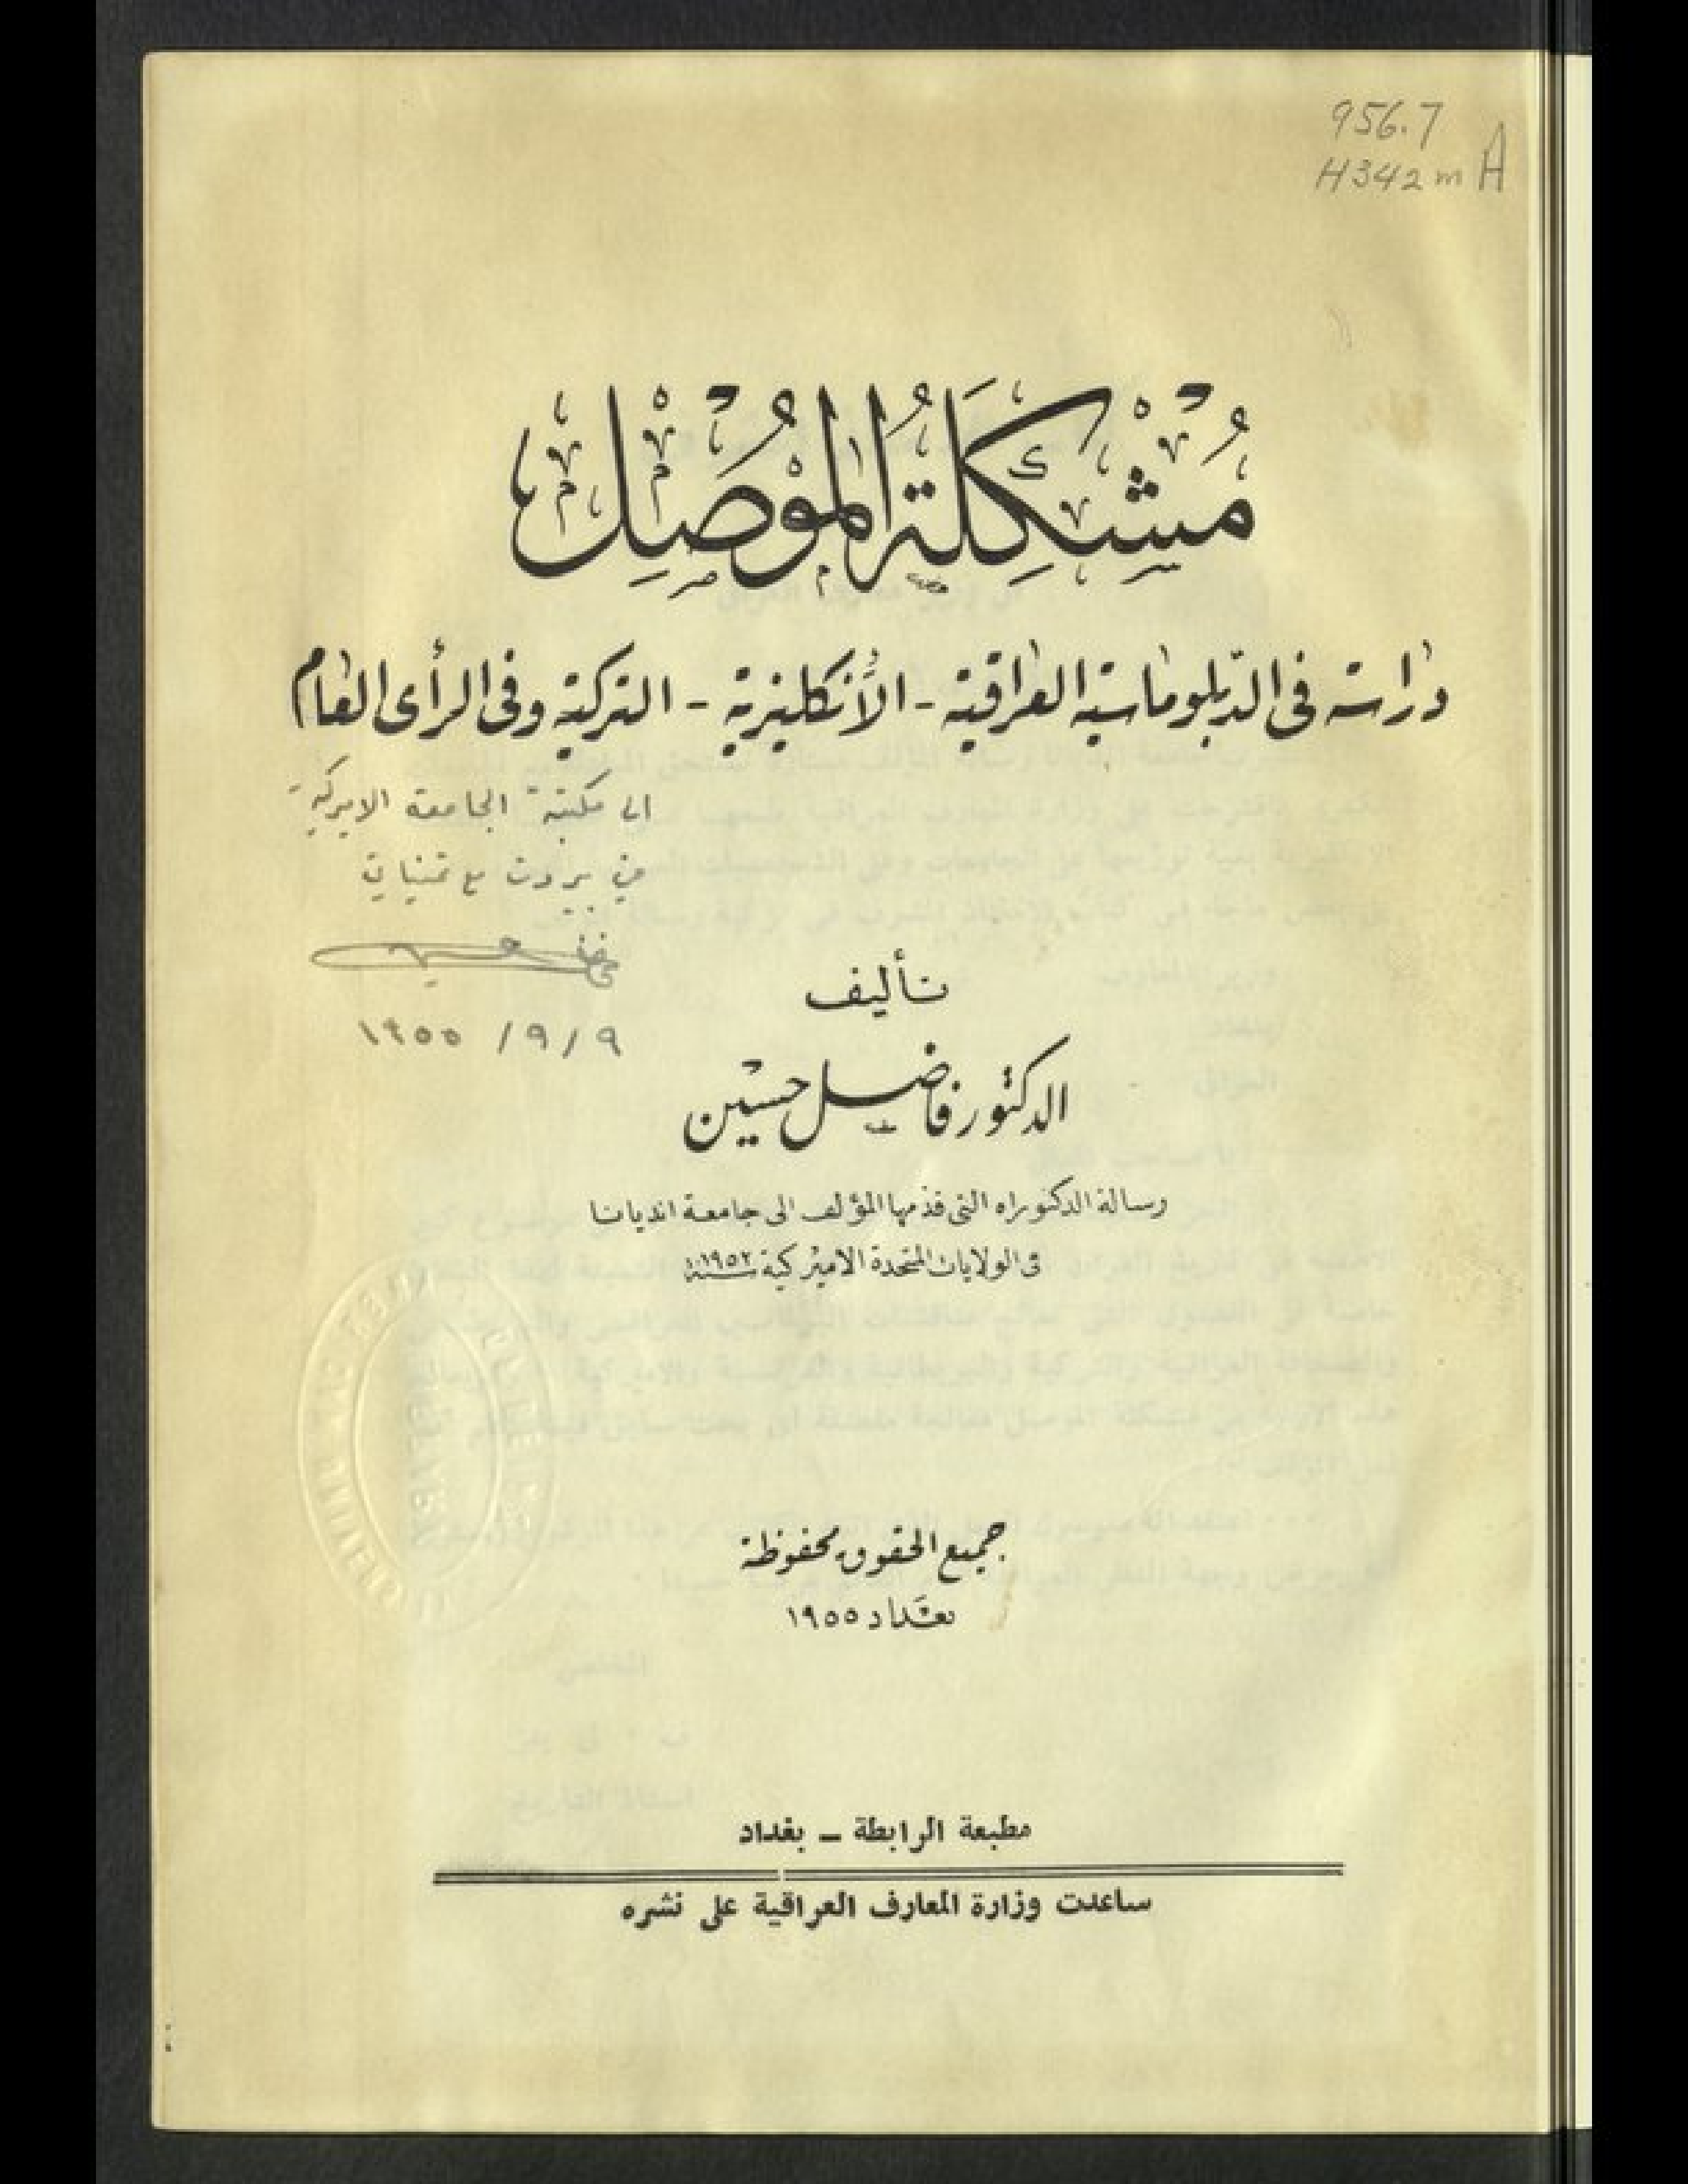 956.7
H342mA
مُشْكِلَةُ المُوْصِل
دراسة في الدّبلوماسية العراقية - الأنكليزية - التركية وفى الرأى العام
الى مكتبة الجامعة الاميركية
في بيروت مع تمنياتي
٩/٩/١٩٥٥
تأليف
الدكتور فاضل حسين
رسالة الدكتوراه التى قدمها المؤلف الى جامعة انديانا
فى الولايات المتحدة الاميركية سنة ١٩٥٢
جميع الحقوق محفوظة
بغداد ١٩٥٥
مطبعة الرابطة – بغداد
ساعدت وزارة المعارف العراقية على نشره